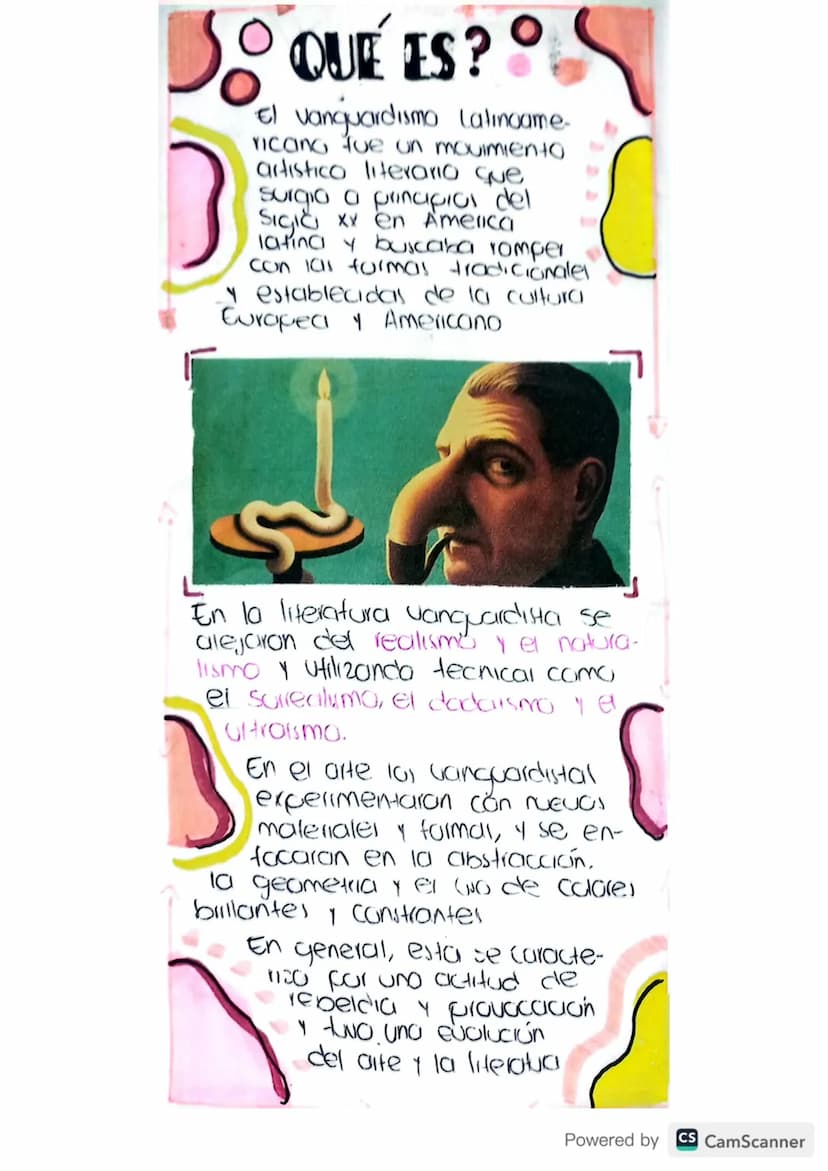 QUÉ ES?
El vanguardismo latinoame-
ricano fue un movimiento
artistico literario que
surgio a principios del
Siglo xx en America
latina y buscaba romper
con las formas tradicionales
y establecidas de la cultura
Europea y Americano
En la literatura vanguardista se
alejaron del realismo y el natura-
lismo y utilizando tecnicas como
el surrealismo, el dadaismo y el
ultraismo.
En el arte los vanguardistas
experimentaron con nuevos
materiales y formas, y se en-
focaron en la abstracción,
la geometria y el uso de colores
brillantes y constrantes
En general, esta se caracte-
rizo por una actitud de
rebeldia y provocación
y tuvo una evolución
del arte y la literatua
Powered by CS CamScanner